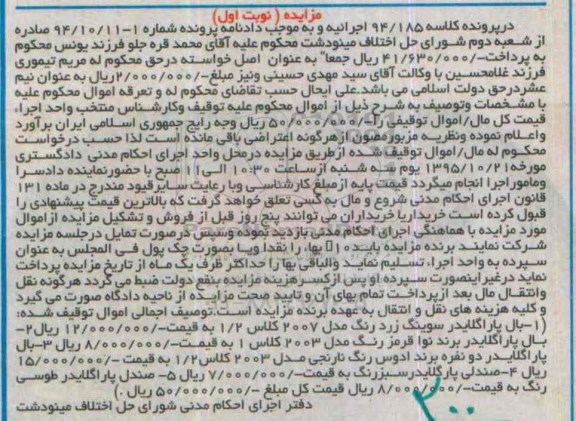 مزایده ( نوبت اول)
درپرونده کلاسه ۹۴/۱۸۵ اجرائیه و به موجب دادنامه پرونده شماره ۱-۹۴/۱۰/۱۱ صادره
از شعبه دوم شورای حل اختلاف مینودشت محکوم علیه آقای محمد قره جلو فرزند یونس محکوم
به پرداخت-/۴۱/۶۳۰/۰۰۰ ریال جمعا" به عنوان اصل خواسته درحق محکوم له مریم تیموری
فرزند غلامحسین با وکالت آقای سید مهدی حسینی ونیز مبلغ-/۲/۰۰۰/۰۰۰ریال به عنوان نیم
عشردرحق دولت اسلامی می باشد.علی ایحال حسب تقاضای محکوم له و تعرفه اموال محکوم علیه
با مشخصات وتوصیف به شرح ذیل از اموال محکوم علیه توقیف وکارشناس منتخب واحد اجراء،
قیمت کل مال/اموال توقیفی را-/۵۰/۰۰۰/۰۰۰ ریال وجه رایج جمهوری اسلامی ایران برآورد
واعلام نموده ونظریه مزبورمصون ازهرگونه اعتراضی باقی مانده است لذا حسب درخواست
محکوم له مال/اموال توقیف شده ازطریق مزایده درمحل واحد اجرای احکام مدنی دادگستری
مورخه۱۳۹۵/۱۰/۲۱ یوم سه شنبه ازساعت ۱۰:۳۰ الی۱۱ صبح با حضورنماینده دادسرا
وماموراجرا انجام میگردد قیمت پایه ازمبلغ کارشناسی وبا رعایت سایرقیود مندرج در ماده ۱۳۱
قانون اجرای احکام مدنی شروع و مال به کسی تعلق خواهد گرفت که بالاترین قیمت پیشنهادی را
قبول کرده است خریداریا خریداران می توانند پنج روز قبل از فروش و تشکیل مزایده ازاموال
مورد مزایده با هماهنگی اجرای احکام مدنی بازدید نموده وسپس درصورت تمایل درجلسه مزایده
شرکت نمایند برنده مزایده باید۱۰٪ بهاء را نقدا ویا بصورت چک پول فی المجلس به عنوان
سپرده به واحد اجراء تسلیم نماید والباقی بها را حداکثر ظرف یک ماه از تاریخ مزایده پرداخت
نماید درغیر اینصورت سپرده او پس ازکسرهزینه مزایده بنفع دولت ضبط می گردد هرگونه نقل
وانتقال مال بعد ازپرداخت تمام بهای آن و تایید صحت مزایده از ناحیه دادگاه صورت می گیرد
و کلیه هزینه های نقل و انتقال به عهده برنده مزایده است.توصیف اجمالی اموال توقیف شده:
(۱-بال پاراگلایدر سوینگ زرد رنگ مدل ۲۰۰۷ کلاس ۱/۲ به قیمت-/۱۲/۰۰۰/۰۰۰ ریال۲-
بال پاراگلایدر برند نوا قرمز رنگ مدل ۲۰۰۳ کلاس ۱ به قیمت-/۸/۰۰۰/۰۰۰ ریال ۳-بال
پاراگلایدر دو نفره برند ادوس رنگ نارنجی مدل ۲۰۰۳ کلاس۱/۲ به قیمت -/۱۵/۰۰۰/۰۰۰
ریال ۴-صندلی پارگلایدرسبزرنگ به قیمت-/۷/۰۰۰/۰۰۰ ریال ۵- صندل پاراگلایدر طوسی
رنگ به قیمت-/۸/۰۰۰/۰۰۰ ریال قیمت کل مبلغ -/۵۰/۰۰۰/۰۰۰ ریال .)
دفتر اجرای احکام مدنی شورای حل اختلاف مینودشت